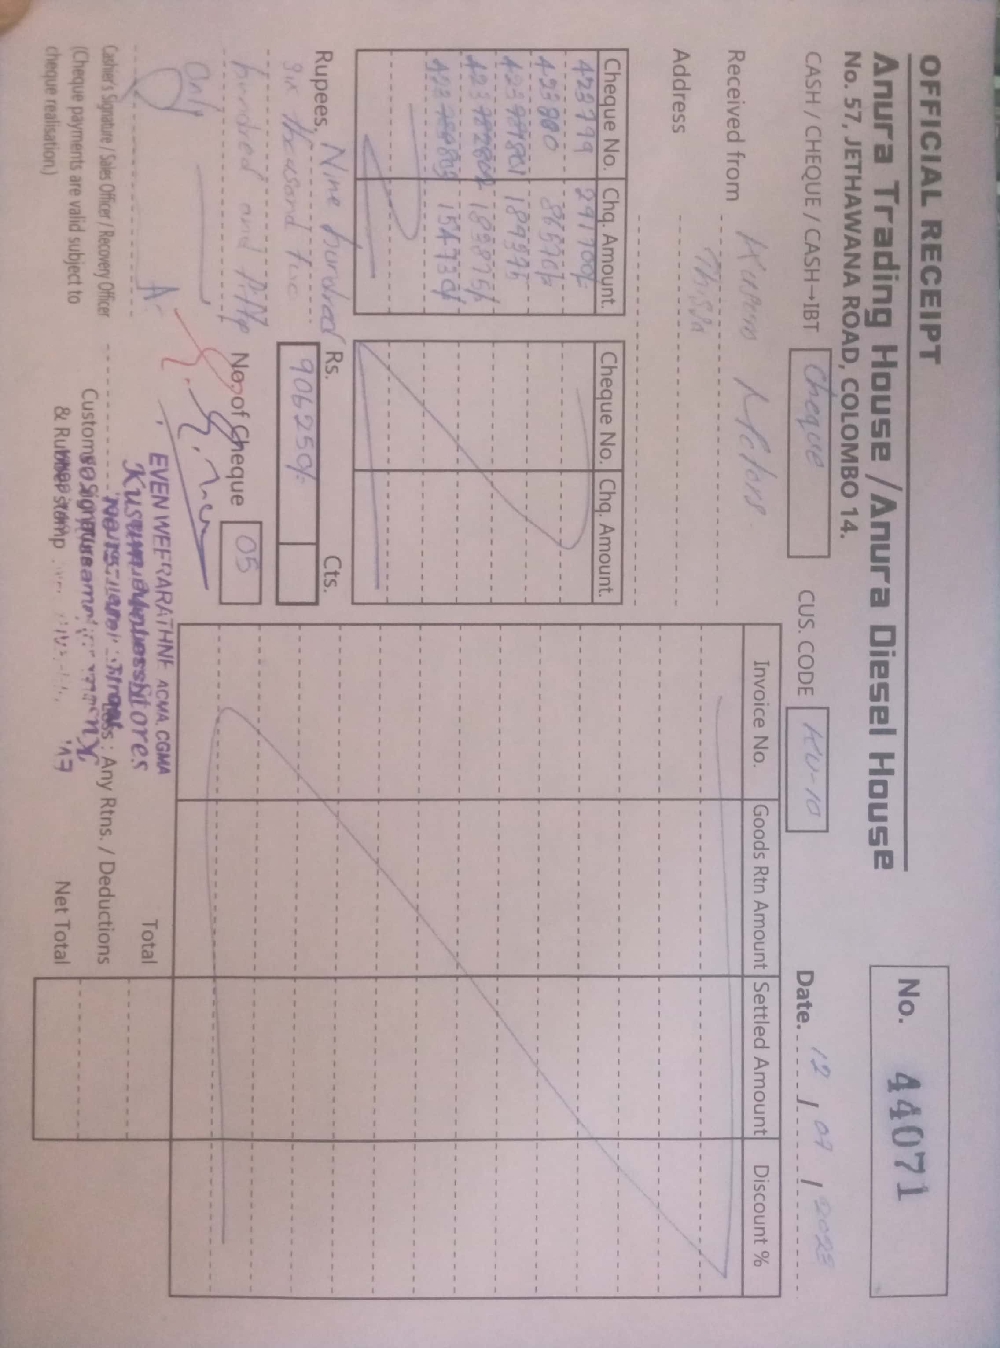 OFFICIAL RECEIPT
Anura Trading House / Anura Diesel House
No. 57, JETHAWANA ROAD, COLOMBO 14.
No. 44071
CASH / CHEQUE / CASH→IBT Cheque CUS. CODE KU-10 Date. 12 / 09 / 2023
Received from Kusum Motors
Address Thissa
Cheque No. Chq. Amount. Cheque No. Chq. Amount.
423799 291700/-
423800
189375
183875/-
154730/-
Invoice No. Goods Rtn Amount Settled Amount Discount %
Rupees, Nine hundred
six thousand two
hundred and fifty
only
Rs. 906250/- Cts.
No. of Cheque 05
Cashier's Signature / Sales Officer / Recovery Officer
(Cheque payments are valid subject to
cheque realisation.)
Customs Signature
& Rubber stamp
EVEN WEERARATHNE ACMA, CGMA
Total
Less : Any Rtns. / Deductions
Net Total